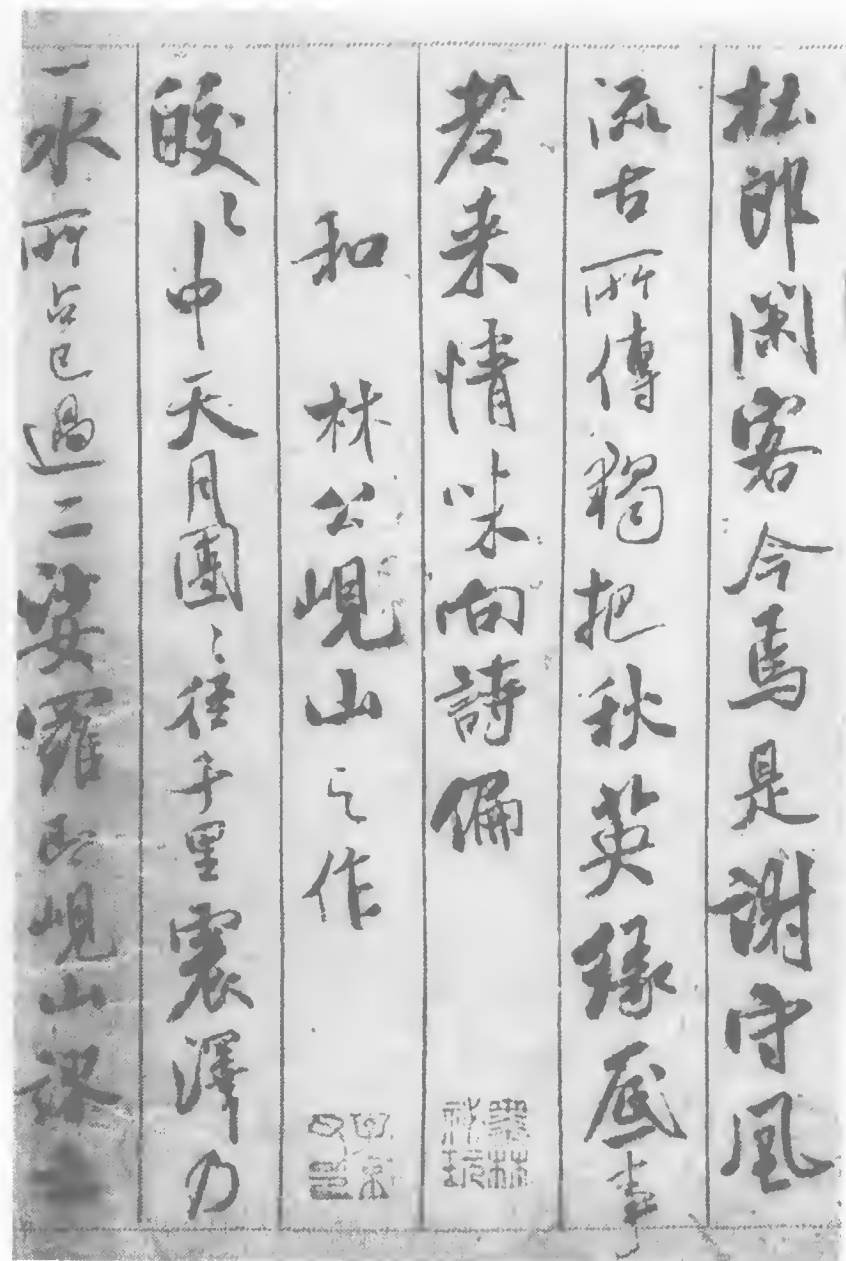 杜郎閑客今焉是謝守風
流古所傳獨把秋英緣底事
老来情味向詩偏
和 林公峴山之作
皎〻中天月團〻徑千里震澤乃
一水所占已過二娑羅即峴山謬